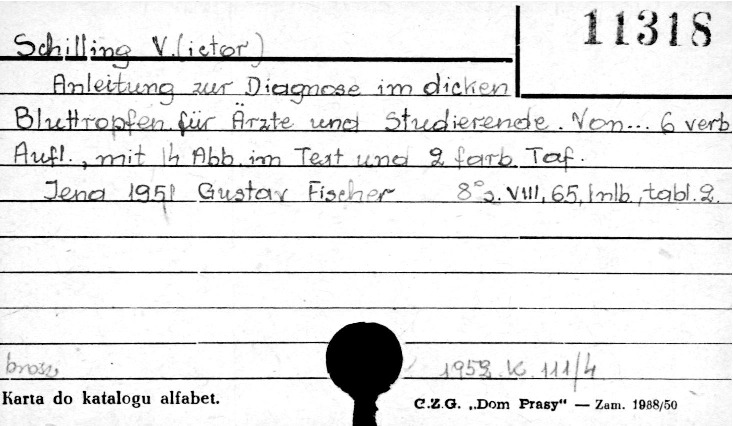 11318
Schilling V.(ictor)
Anleitung zur Diagnose im dicken
Bluttropfen für Ärzte und Studierende. Von... 6 verb
Aufl., mit 14 Abb. im Text und 2 farb. Taf.
Jena 1951 Gustav Fischer 8° s. VIII, 65, 1 nlb., tabl. 2.
brosz 1952. K. 111/4
Karta do katalogu alfabet.
C.Z.G. „Dom Prasy" — Zam. 1988/50